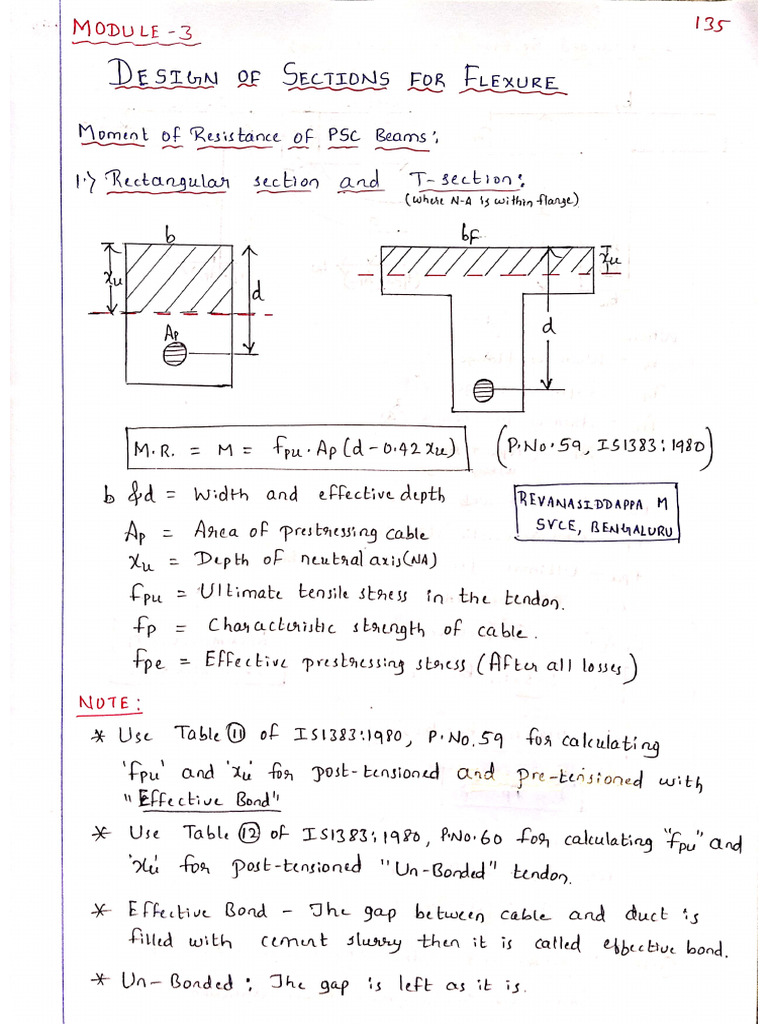 135
MODULE-3
DESIGN OF SECTIONS FOR FLEXURE
Moment of Resistance of PSC Beams:
1.) Rectangular section and T-section:
(where N-A is within flange)
b
xu
d
Ap
bf
xu
d
M.R. = M = fpu . Ap (d - 0.42 xu)
(P.No.59, IS1383:1980)
b & d = Width and effective depth
REVANASIDDAPPA M
SVCE, BENGALURU
Ap = Area of prestressing cable
xu = Depth of neutral axis (NA)
fpu = Ultimate tensile stress in the tendon.
fp = Characteristic strength of cable.
fpe = Effective prestressing stress (After all losses)
NOTE:
* Use Table 11 of IS1383:1980, P.No.59 for calculating
'fpu' and 'xu' for post-tensioned and pre-tensioned with
"Effective Bond"
* Use Table 12 of IS1383:1980, P.No.60 for calculating "fpu" and
'xu' for post-tensioned "Un-Bonded" tendon.
* Effective Bond - The gap between cable and duct is
filled with cement slurry then it is called effective bond.
* Un-Bonded: The gap is left as it is.